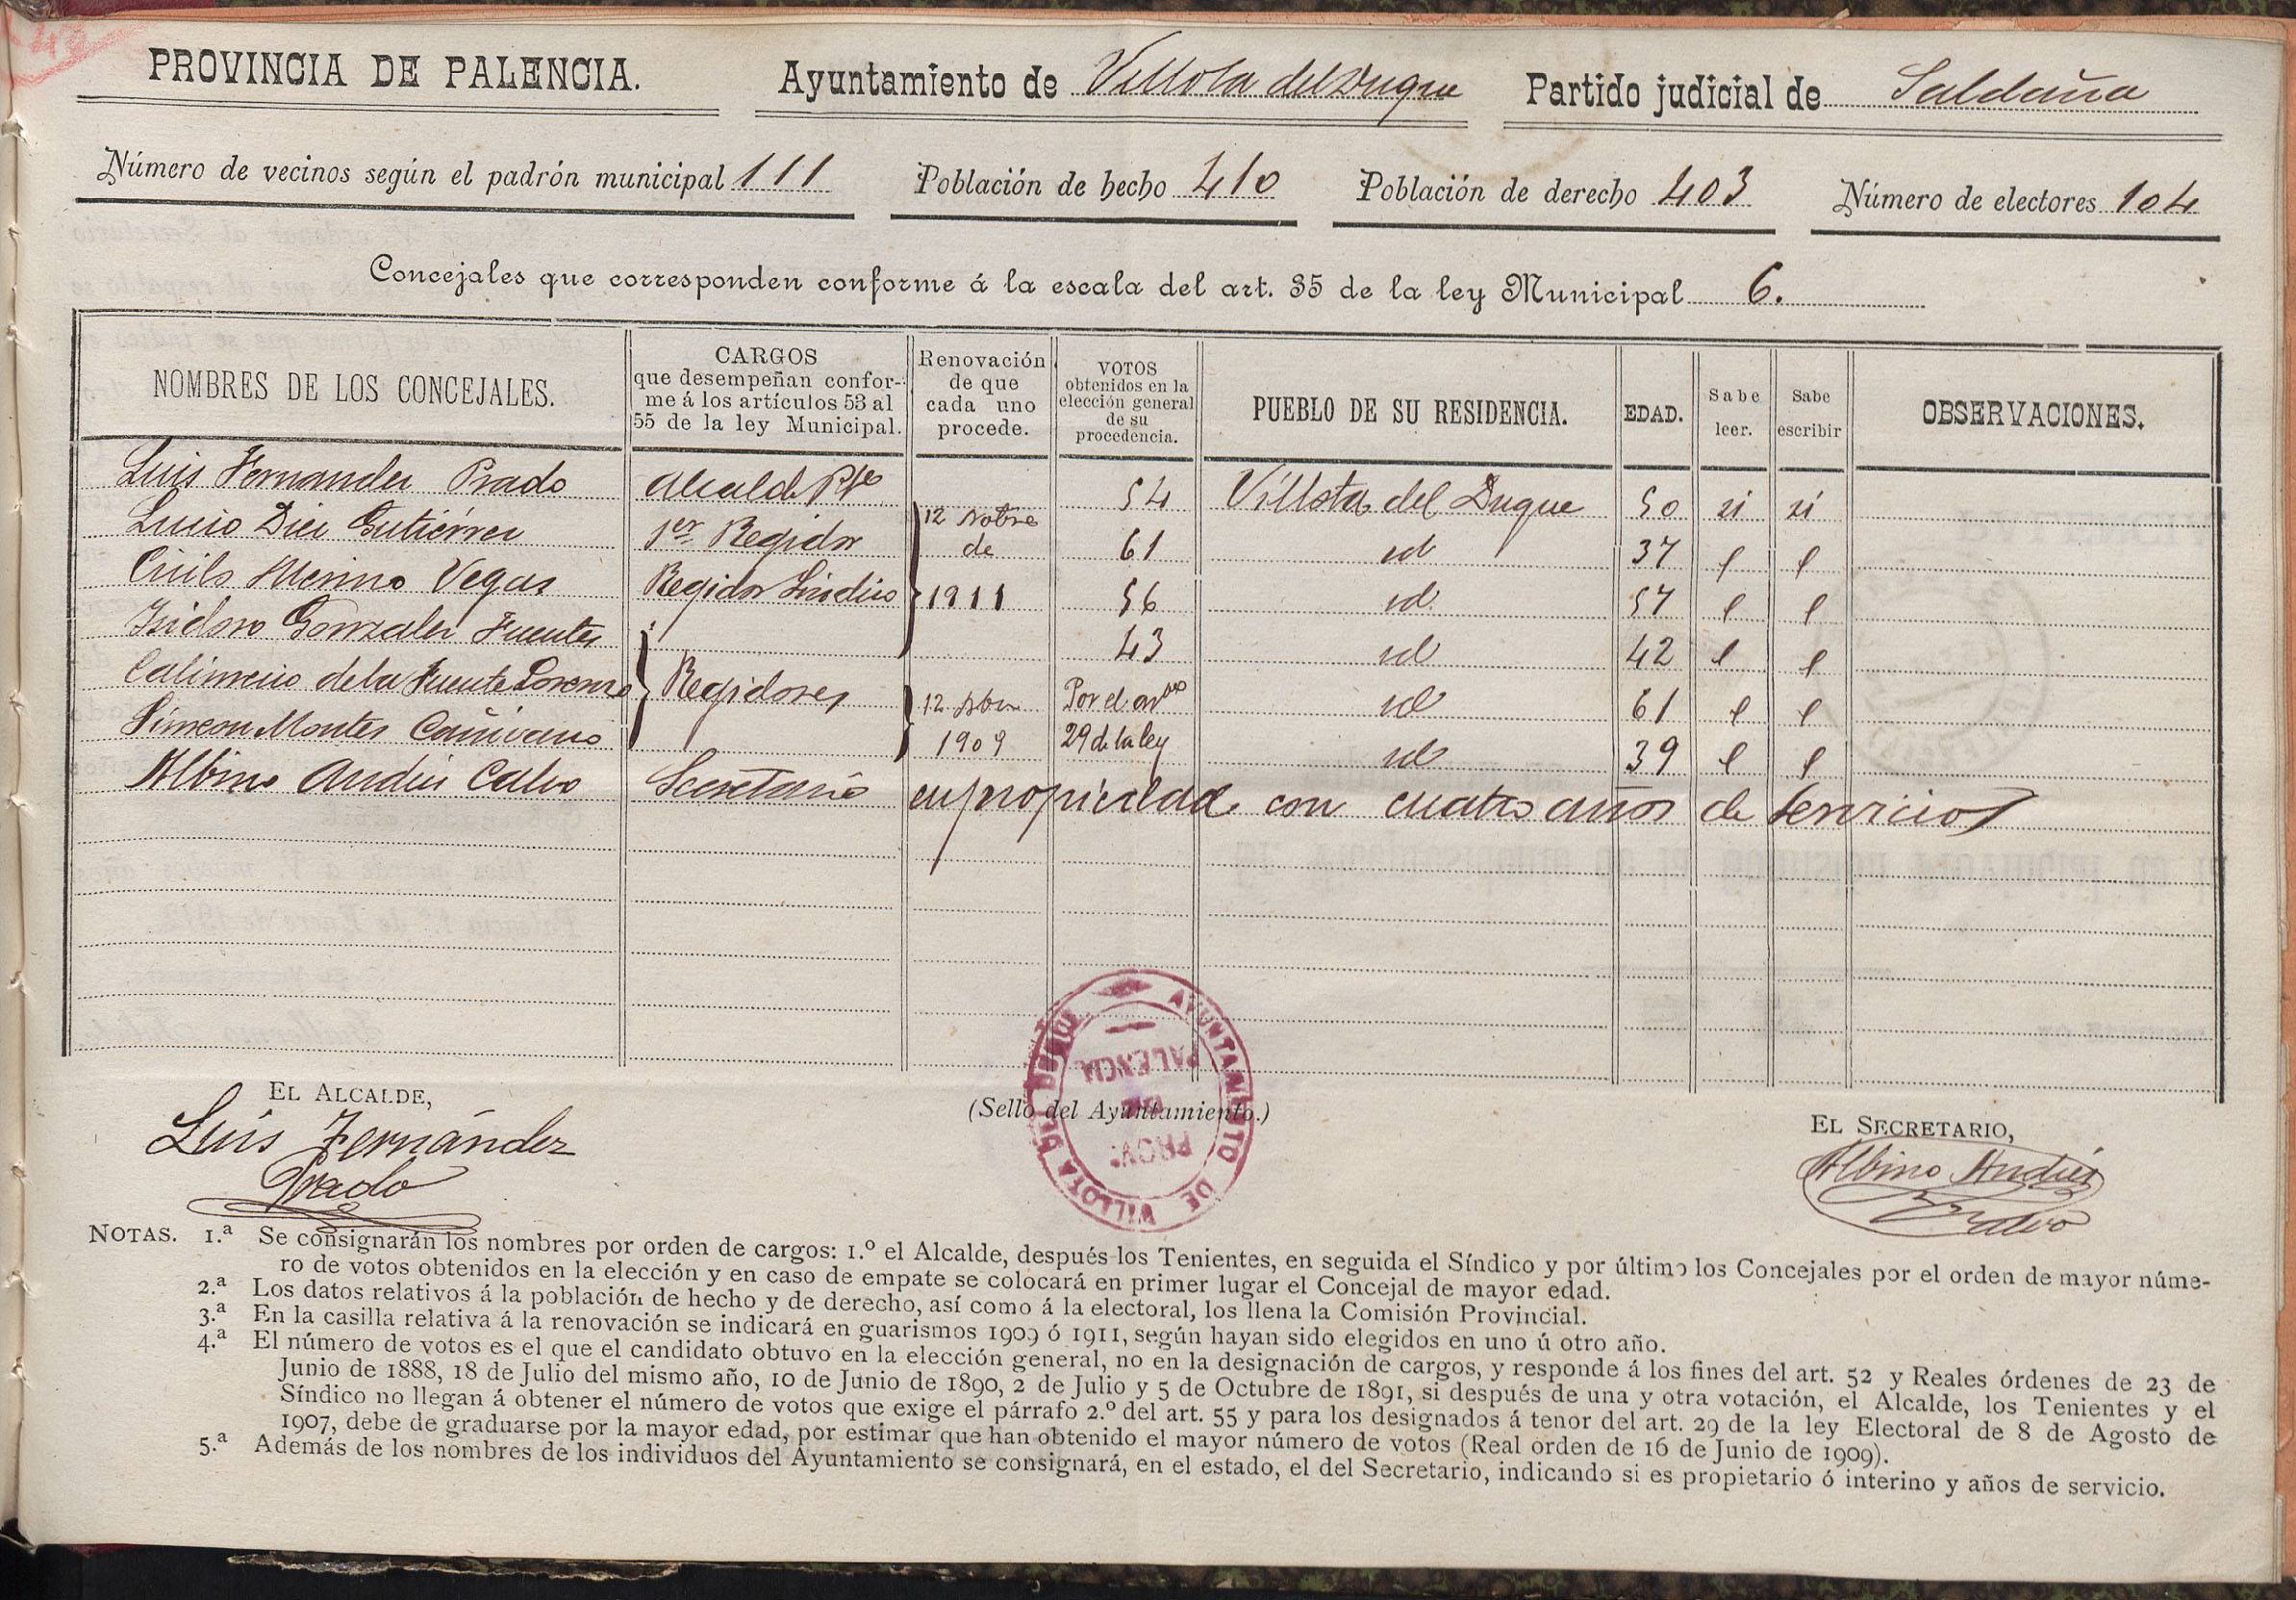 40
PROVINCIA DE PALENCIA. Ayuntamiento de Villota del Duque Partido judicial de Saldaña
Número de vecinos según el padrón municipal 111 Población de hecho 410 Población de derecho 403 Número de electores 104
Concejales que corresponden conforme á la escala del art. 35 de la ley Municipal 6.
NOMBRES DE LOS CONCEJALES. CARGOS que desempeñan confor- me á los artículos 53 al 55 de la ley Municipal. Renovación de que cada uno procede. VOTOS obtenidos en la elección general de su procedencia. PUEBLO DE SU RESIDENCIA. EDAD. Sabe leer. Sabe escribir OBSERVACIONES.
Luis Fernandez Prado Alcalde Pte 54 Villota del Duque 50 si si
Lucio Diez Gutiérrez 1er Regidor 12 Nobre de 61 id 37 l l
Cirilo Merino Vegas Regidor Sindico 1911 56 id. 57 l l
Isidoro Gonzalez Fuentes 43 id 42 l l
Calimerio de la Fuente Lorenzo Regidores 12 Dbre Por el arto id 61 l l
Simeon Montes 1909 29 de la ley id 39 l l
Albino Andrés Calvo Secretario en propiedad con cuatro años de servicios
EL ALCALDE,
Luis Fernández
Prado
(Sello del Ayuntamiento.)
AYUNTAMIENTO DE VILLOTA DEL DUQUE
PROV.ª
DE
PALENCIA
EL SECRETARIO,
Albino Andrés
Calvo
NOTAS. 1.ª Se consignarán los nombres por orden de cargos: 1.º el Alcalde, después los Tenientes, en seguida el Síndico y por último los Concejales por el orden de mayor núme-
ro de votos obtenidos en la elección y en caso de empate se colocará en primer lugar el Concejal de mayor edad.
2.ª Los datos relativos á la población de hecho y de derecho, así como á la electoral, los llena la Comisión Provincial.
3.ª En la casilla relativa á la renovación se indicará en guarismos 1909 ó 1911, según hayan sido elegidos en uno ú otro año.
4.ª El número de votos es el que el candidato obtuvo en la elección general, no en la designación de cargos, y responde á los fines del art. 52 y Reales órdenes de 23 de
Junio de 1888, 18 de Julio del mismo año, 10 de Junio de 1890, 2 de Julio y 5 de Octubre de 1891, si después de una y otra votación, el Alcalde, los Tenientes y el
Síndico no llegan á obtener el número de votos que exige el párrafo 2.º del art. 55 y para los designados á tenor del art. 29 de la ley Electoral de 8 de Agosto de
1907, debe de graduarse por la mayor edad, por estimar que han obtenido el mayor número de votos (Real orden de 16 de Junio de 1909).
5.ª Además de los nombres de los individuos del Ayuntamiento se consignará, en el estado, el del Secretario, indicando si es propietario ó interino y años de servicio.